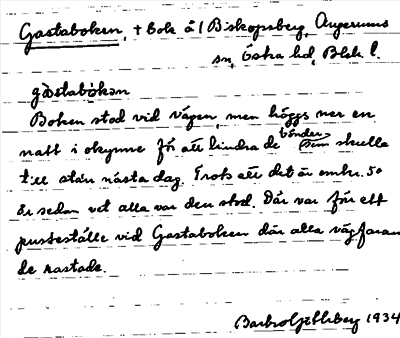 Gastaboken, + bok å / Biskopsberg, Augerums
sn, Östra hd, Blek. l.
gàstabókən
Boken stod vid vägen, men höggs ner en
natt i okynne för att hindra de bönder som skulle
till stan nästa dag. Trots att det är omkr. 50
år sedan vet alla var den stod. Där var förr ett
pusteställe vid Gastaboken där alla vägfaran
de rastade.
Barbro 1934